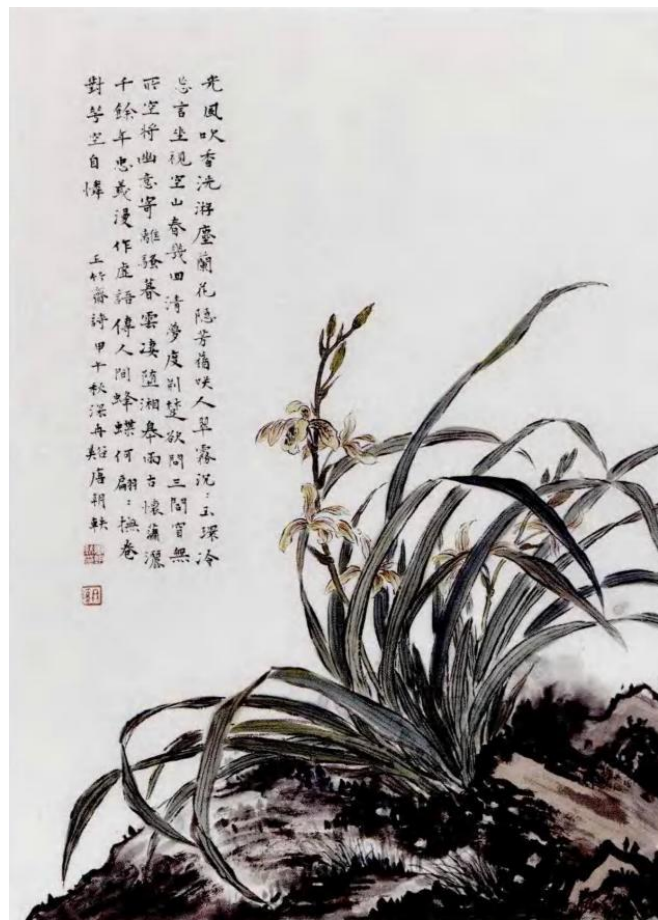 光風吹香洗游塵蘭花隱芳咲人翠霧沉：玉深冷
忘言坐視空山春幾回清夢度荆楚欲問三閭官無
所空將幽意寄離騷暮雲凄墮湘皋雨古懷蕭灑
千餘年忠義漫作虛語傳人間蜂蝶何翩：撫卷
對空自憐　王竹齋詩甲午秋深唐朔軼